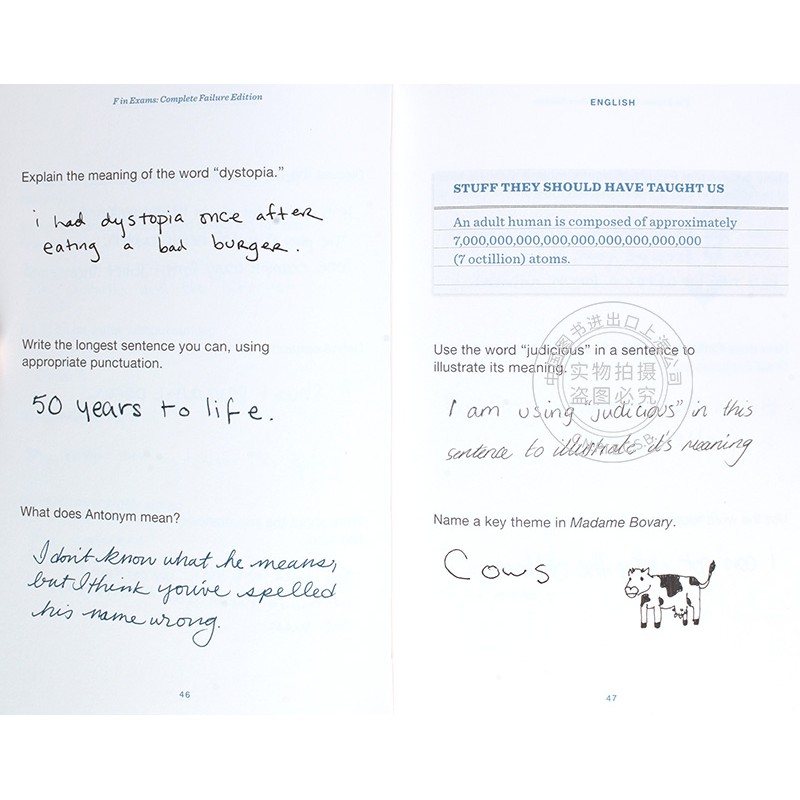 F in Exams: Complete Failure Edition
Explain the meaning of the word “dystopia.”
i had dystopia once after
eating a bad burger.
Write the longest sentence you can, using
appropriate punctuation.
50 years to life.
What does Antonym mean?
I don't know what he means,
but I think you've spelled
his name wrong.
46
ENGLISH
STUFF THEY SHOULD HAVE TAUGHT US
An adult human is composed of approximately
7,000,000,000,000,000,000,000,000,000
(7 octillion) atoms.
Use the word “judicious” in a sentence to
illustrate its meaning.
I am using "judicious" in this
sentence to illustrate it's meaning
Name a key theme in Madame Bovary.
Cows
47
中国图书进出口上海公司
实物拍摄
盗图必究